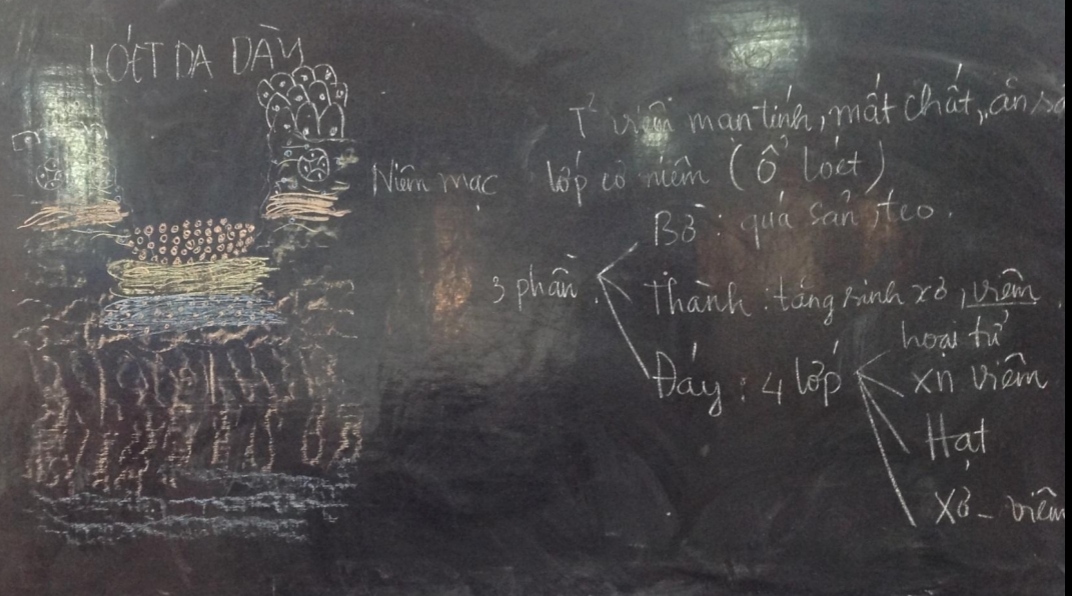 LOÉT DẠ DÀY
T² viêm mạn tính, mất chất, ăn sâ
Niêm mạc
lớp cơ niêm (ổ loét)
Bờ: quá sản, teo.
3 phần
Thành: tăng sinh xơ, viêm.
Đáy: 4 lớp
hoại tử
XH viêm
Hạt
Xơ - viêm